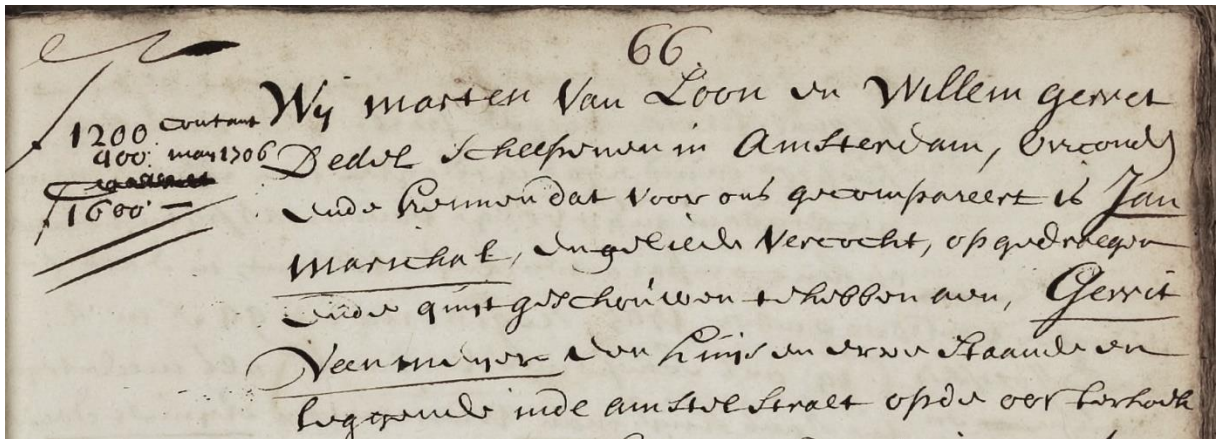 66.
1200 Contant
400: may 1706
1600 —
Wij marten Van Loon en Willem gerret
Dedel Scheepenen in Amsterdam, Orconde
ende kennen dat voor ons gecompareert is Jan
marichal, en geliede Vercocht, opgedraegen
ende quijt geschouwen te hebben aen, Gerrit
Veenmeijer een huijs en erve Staande en
leggende inde amstelstraet opde oosterhoek